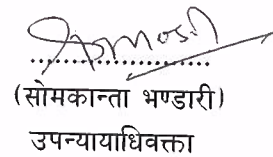 ....................
(सोमकान्ता भण्डारी)
उपन्यायाधिवक्ता